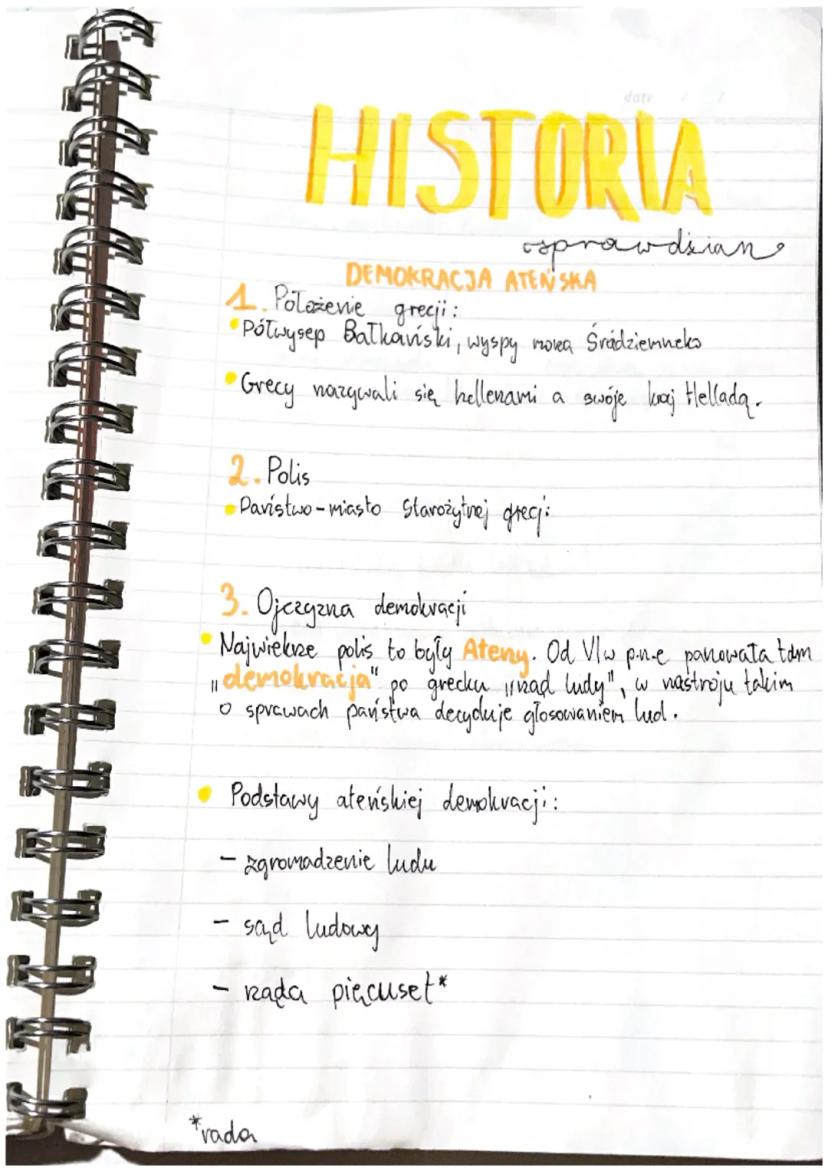 date / /
HISTORIA
sprawdzian
DEMOKRACJA ATEŃSKA
1. Położenie grecji:
• Półwysep Bałkański, wyspy morza Śródziemneko
• Grecy nazywali się hellenami a swóje kraj Helladą.
2. Polis
• Państwo-miasto Starożytnej grecji
3. Ojczyzna demokracji
• Najwiekrze polis to były Ateny. Od VI w p.n.e panowała tam
"demokracja" po grecku "rząd ludy", w nastroju takim
o sprawach państwa decyduje głosowaniem lud.
• Podstawy ateńskiej demokracji:
- zgromadzenie ludu
- sąd ludowy
- rząda pięcuset*
*rada